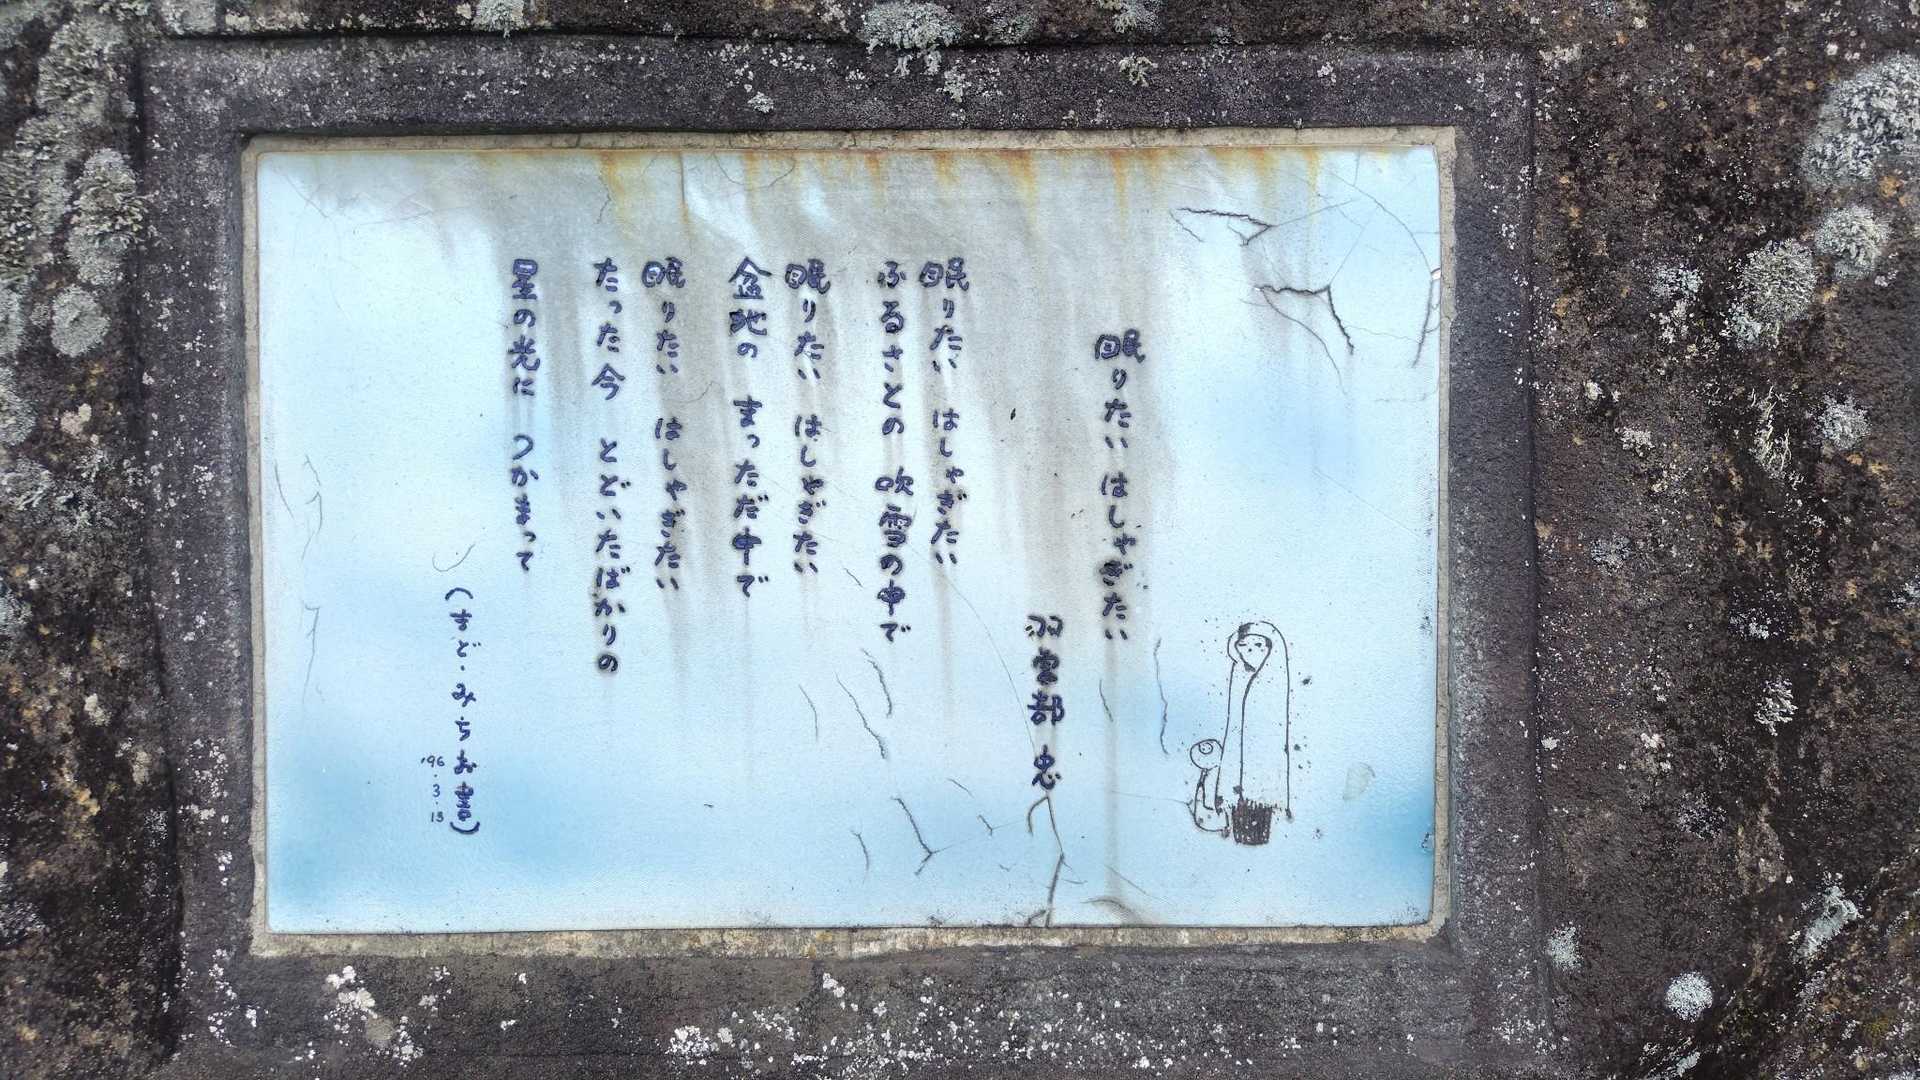 眠りたい はしゃぎたい
羽曾部 忠
眠りたい はしゃぎたい
ふるさとの 吹雪の中で
眠りたい はしゃぎたい
盆地の まっただ中で
眠りたい はしゃぎたい
たった今 とどいたばかりの
星の光に つかまって
(まど・みちお書)
'96.3.13